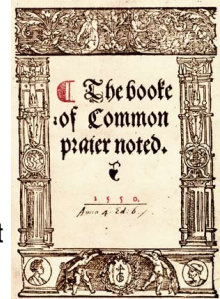 ¶ The booke
of Common
praier noted.
1550.
Anno 4. Ed. 6.
t